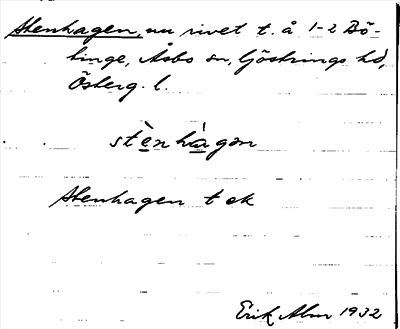 Stenhagen, nu rivet t. å 1-2 Bö-
linge, Åsbo sn, Göstrings hd,
Österg. l.
stènhàgən
Stenhagen t ek
Erik Alm 1932